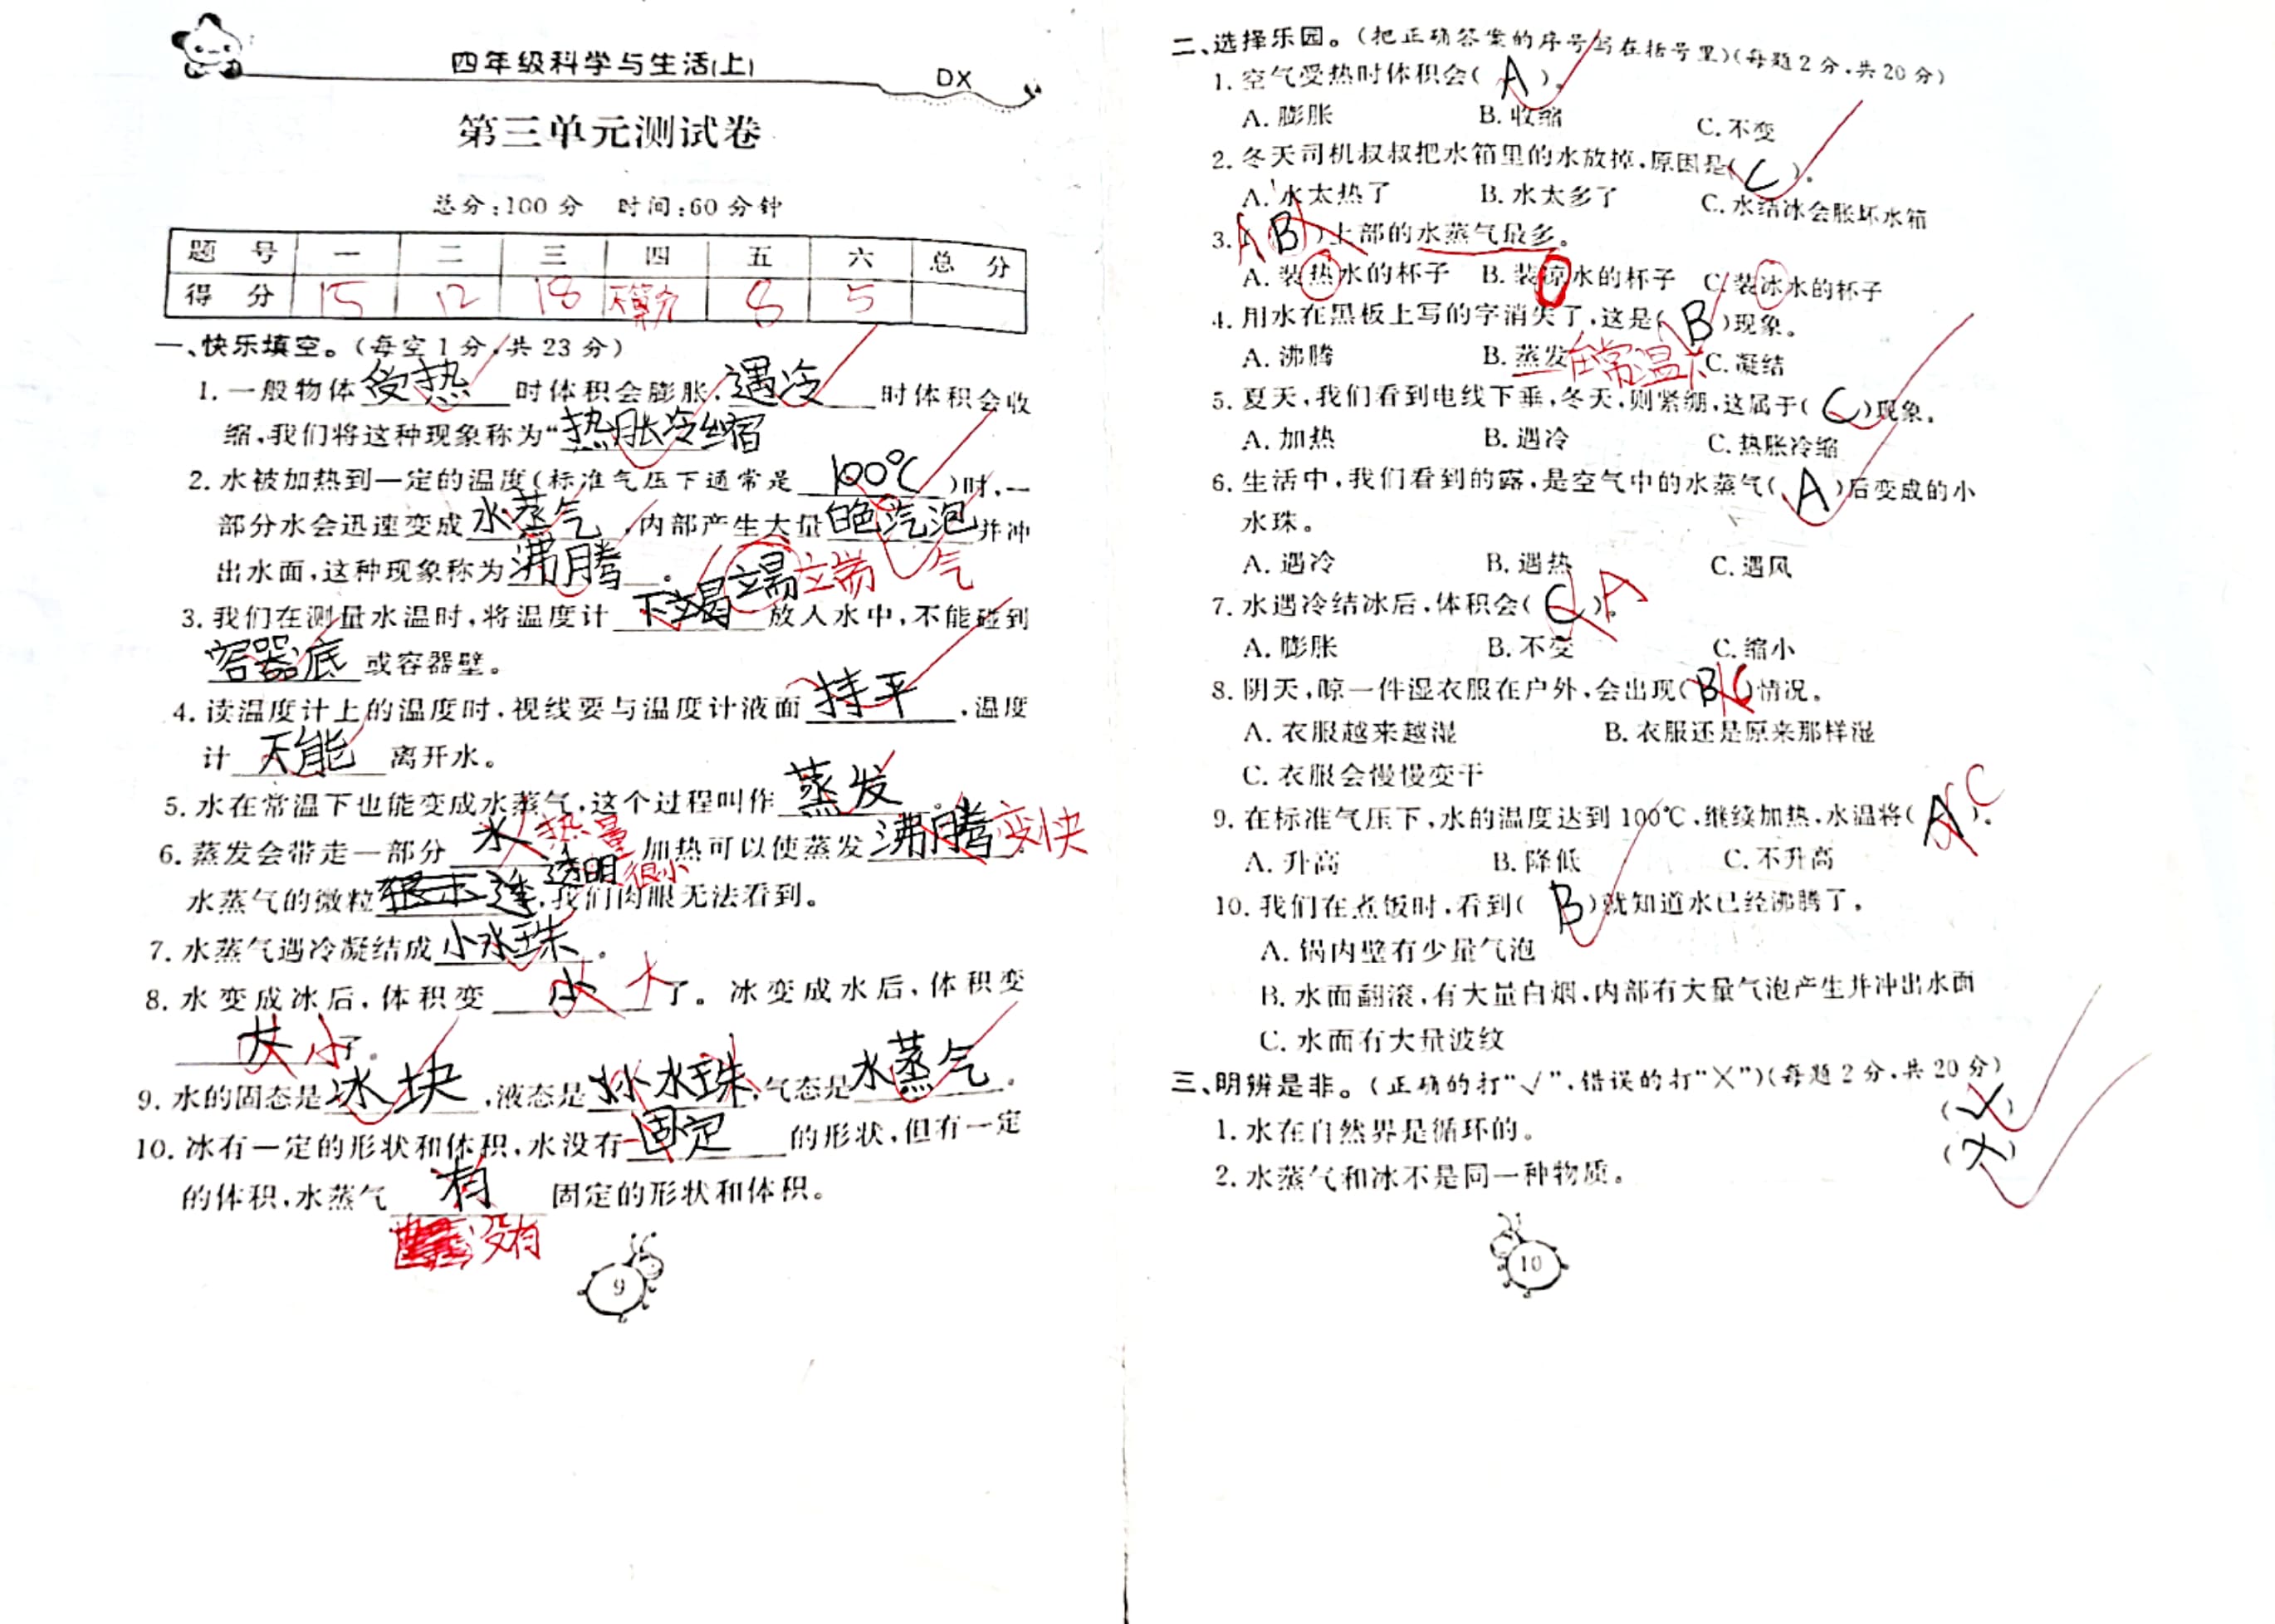 四年级科学与生活(上)
DX
第三单元测试卷
总分:100分 时间:60分钟
题 号 一 二 三 四 五 六 总 分
得 分 15 12 18 不算分 8 5
一、快乐填空。(每空1分,共23分)
1. 一般物体受热时体积会膨胀,遇冷时体积会收
缩,我们将这种现象称为“热胀冷缩
2. 水被加热到一定的温度(标准气压下通常是100℃)时,一
部分水会迅速变成水蒸气,内部产生大量白色汽泡并冲
气
出水面,这种现象称为沸腾。
端 立端
3. 我们在测量水温时,将温度计下端放入水中,不能碰到
容器底或容器壁。
4. 读温度计上的温度时,视线要与温度计液面持平,温度
计不能离开水。
5. 水在常温下也能变成水蒸气,这个过程叫作蒸发。
6. 蒸发会带走一部分水 热量 加热可以使蒸发沸腾 变快
水蒸气的微粒透明 很小,我们肉眼无法看到。
7. 水蒸气遇冷凝结成小水珠。
8. 水变成冰后,体积变小 大了。冰变成水后,体积变
大 小了。
9. 水的固态是冰块,液态是小水珠,气态是水蒸气。
10. 冰有一定的形状和体积,水没有固定的形状,但有一定
的体积,水蒸气有固定的形状和体积。
没有
9
二、选择乐园。(把正确答案的序号写在括号里)(每题2分,共20分)
1. 空气受热时体积会( A )。
A. 膨胀 B. 收缩 C. 不变
2. 冬天司机叔叔把水箱里的水放掉,原因是( C )。
A. 水太热了 B. 水太多了 C. 水结冰会胀坏水箱
3. A ( B )上部的水蒸气最多。
A. 装热水的杯子 B. 装凉水的杯子 C. 装冰水的杯子
4. 用水在黑板上写的字消失了,这是( B )现象。
A. 沸腾 B. 蒸发 在常温下 C. 凝结
5. 夏天,我们看到电线下垂,冬天,则紧绷,这属于( C )现象。
A. 加热 B. 遇冷 C. 热胀冷缩
6. 生活中,我们看到的露,是空气中的水蒸气( A )后变成的小
水珠。
A. 遇冷 B. 遇热 C. 遇风
7. 水遇冷结冰后,体积会( C )。A
A. 膨胀 B. 不变 C. 缩小
8. 阴天,晾一件湿衣服在户外,会出现( B C )情况。
A. 衣服越来越湿 B. 衣服还是原来那样湿
C. 衣服会慢慢变干
9. 在标准气压下,水的温度达到100℃,继续加热,水温将( A )。C
A. 升高 B. 降低 C. 不升高
10. 我们在煮饭时,看到( B )就知道水已经沸腾了。
A. 锅内壁有少量气泡
B. 水面翻滚,有大量白烟,内部有大量气泡产生并冲出水面
C. 水面有大量波纹
三、明辨是非。(正确的打“√”,错误的打“×”)(每题2分,共20分)
1. 水在自然界是循环的。 (√)
2. 水蒸气和冰不是同一种物质。 (×)
10